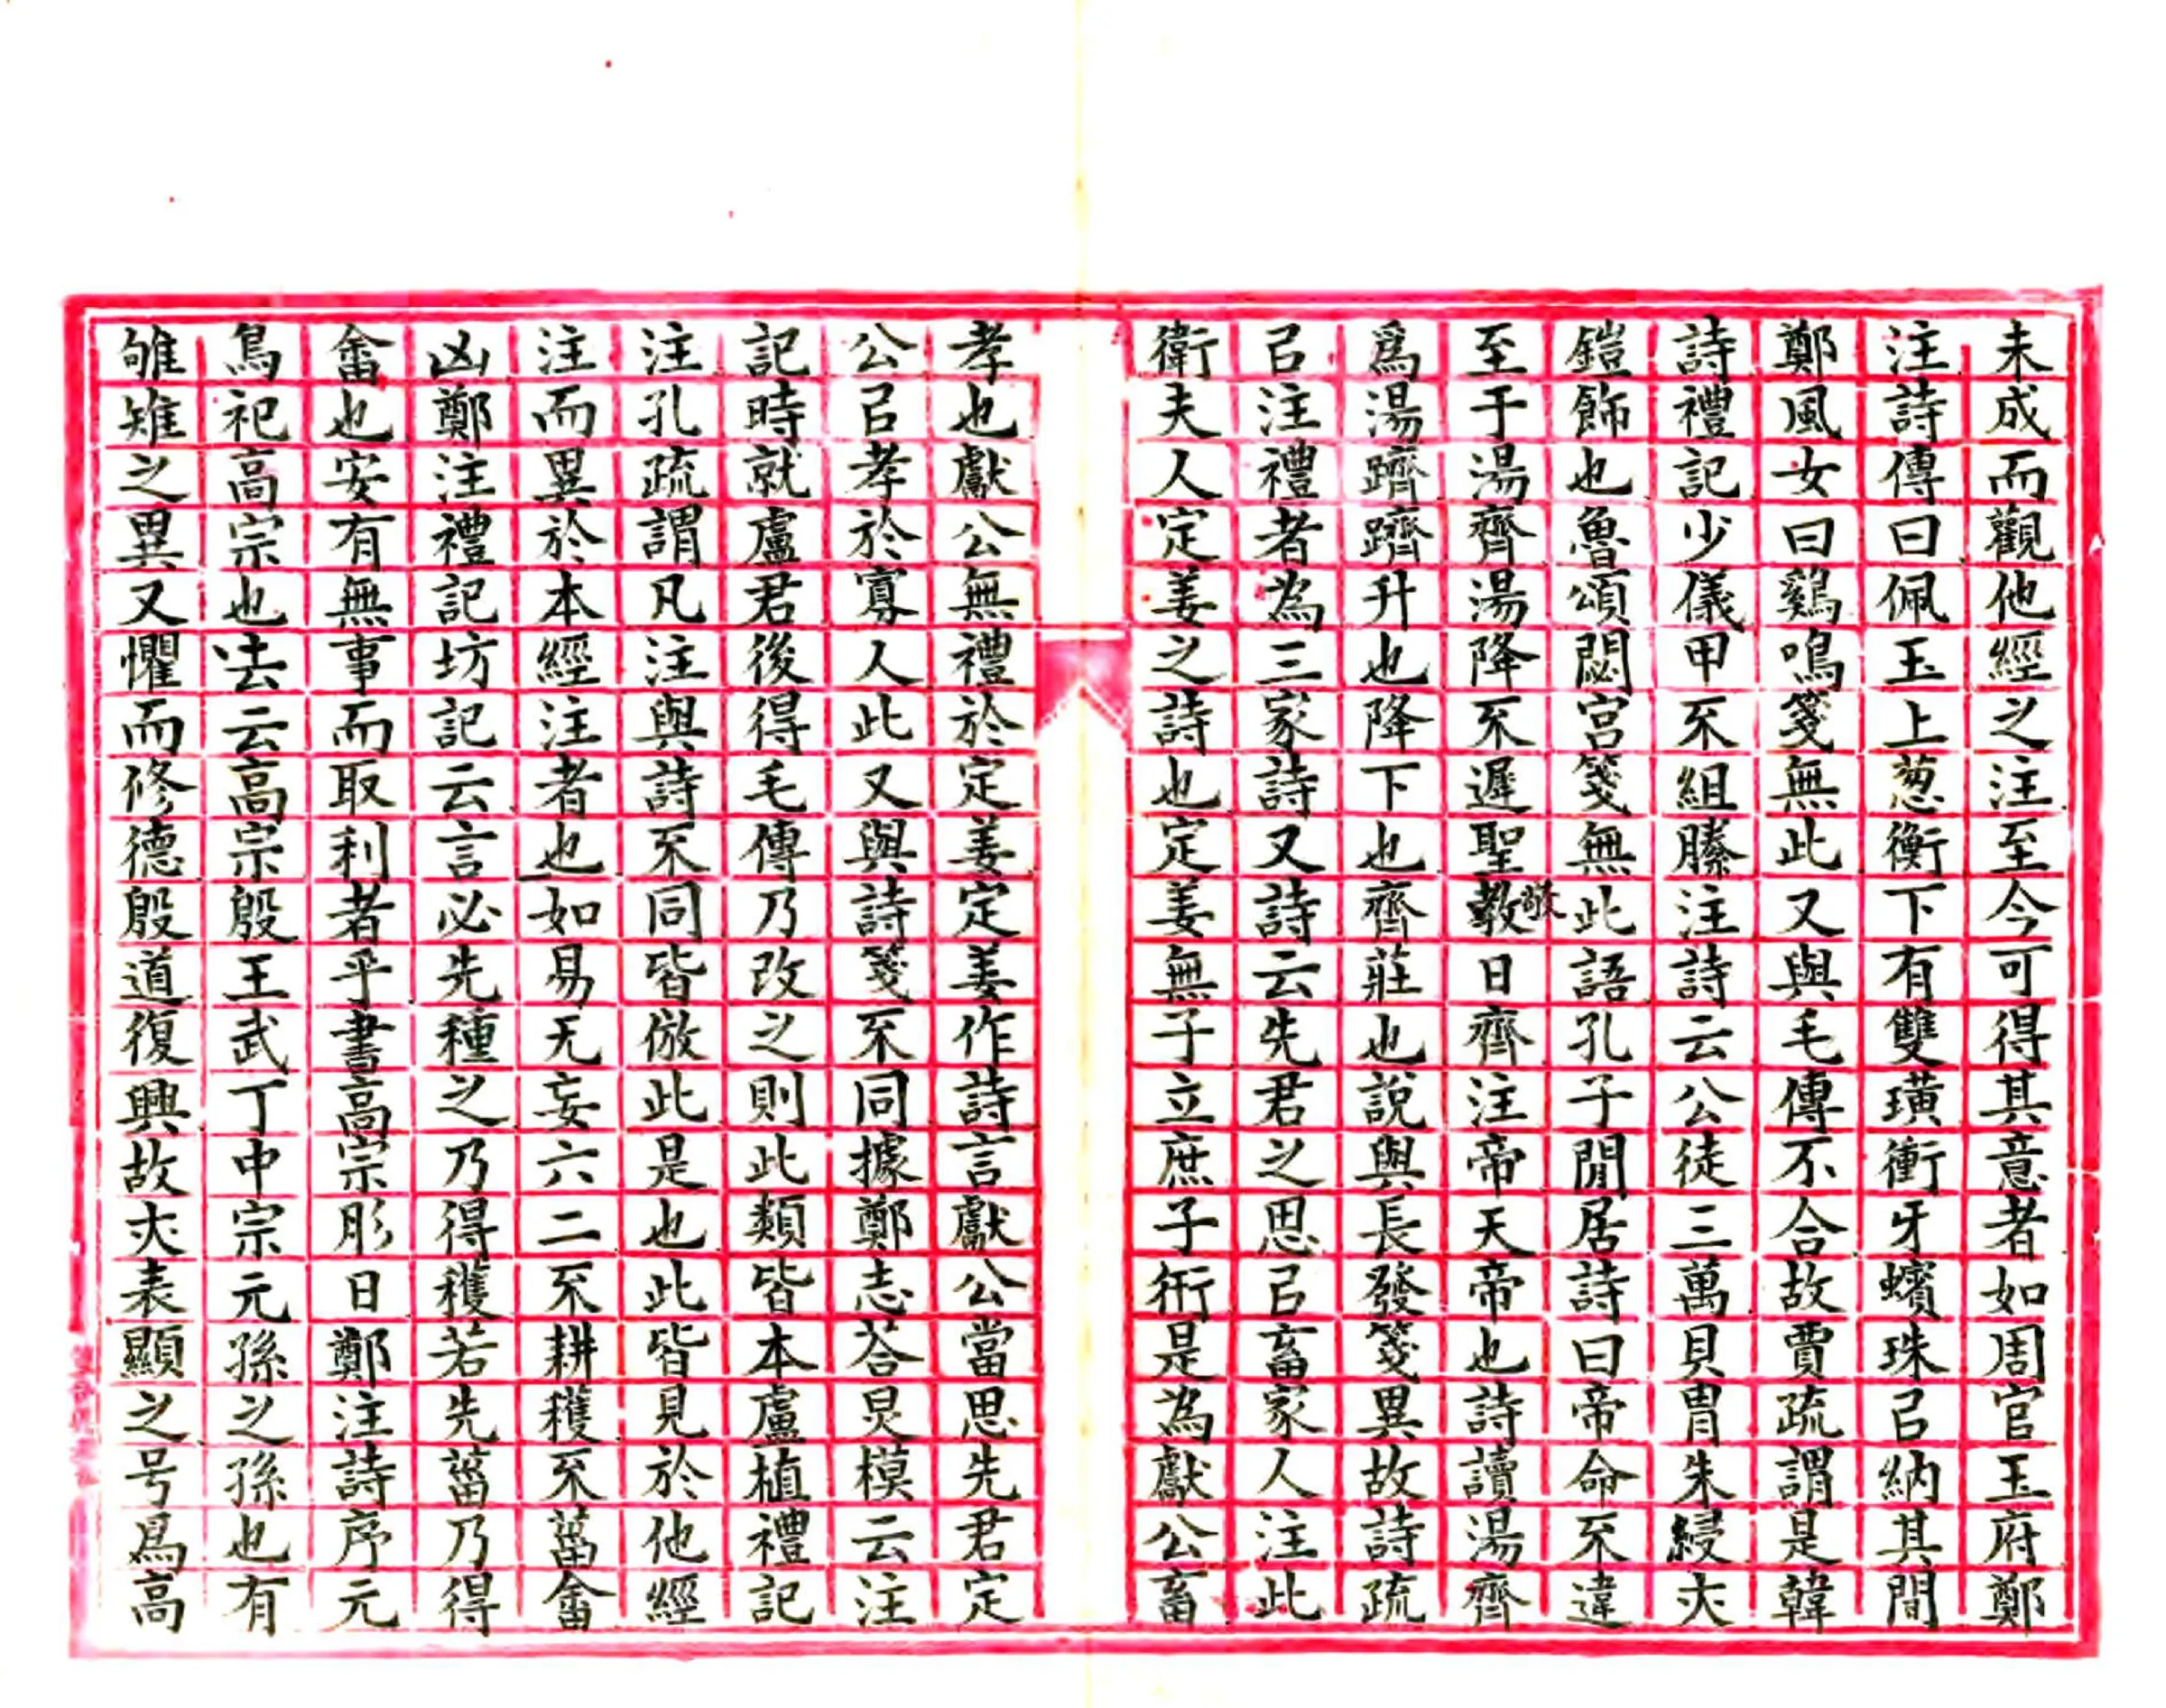 未成而觀他經之注至今可得其意者如周官玉府鄭
注詩傳曰佩玉上葱衡下有雙璜衝牙蠙珠㠯納其間
鄭風女曰鷄鳴箋無此又與毛傳不合故賈疏謂是韓
詩禮記少儀甲不組縢注詩云公徒三萬貝胄朱綅亣
鎧飾也魯頌閟宮箋無此語孔子閒居詩曰帝命不違
至于湯齊湯降不遲聖敬日齊注帝天帝也詩讀湯齊
爲湯躋躋升也降下也齊莊也說與長發箋異故詩疏
㠯注禮者為三家詩又詩云先君之思㠯畜家人注此
衛夫人定姜之詩也定姜無子立庶子衎是為獻公畜
孝也獻公無禮於定姜定姜作詩言獻公當思先君定
公㠯孝於寡人此又與詩箋不同據鄭志荅炅模云注
記時就盧君後得毛傳乃改之則此類皆本盧植禮記
注孔疏謂凡注與詩不同皆倣此是也此皆見於他經
注而異於本經注者也如易无妄六二不耕穫不菑畬
凶鄭注禮記坊記云言必先種之乃得穫若先菑乃得
畬也安有無事而取利者乎書高宗肜日鄭注詩序元
鳥祀高宗也㳒云高宗殷王武丁中宗元孫之孫也有
雊雉之異又懼而修德殷道復興故亣表顯之号爲高